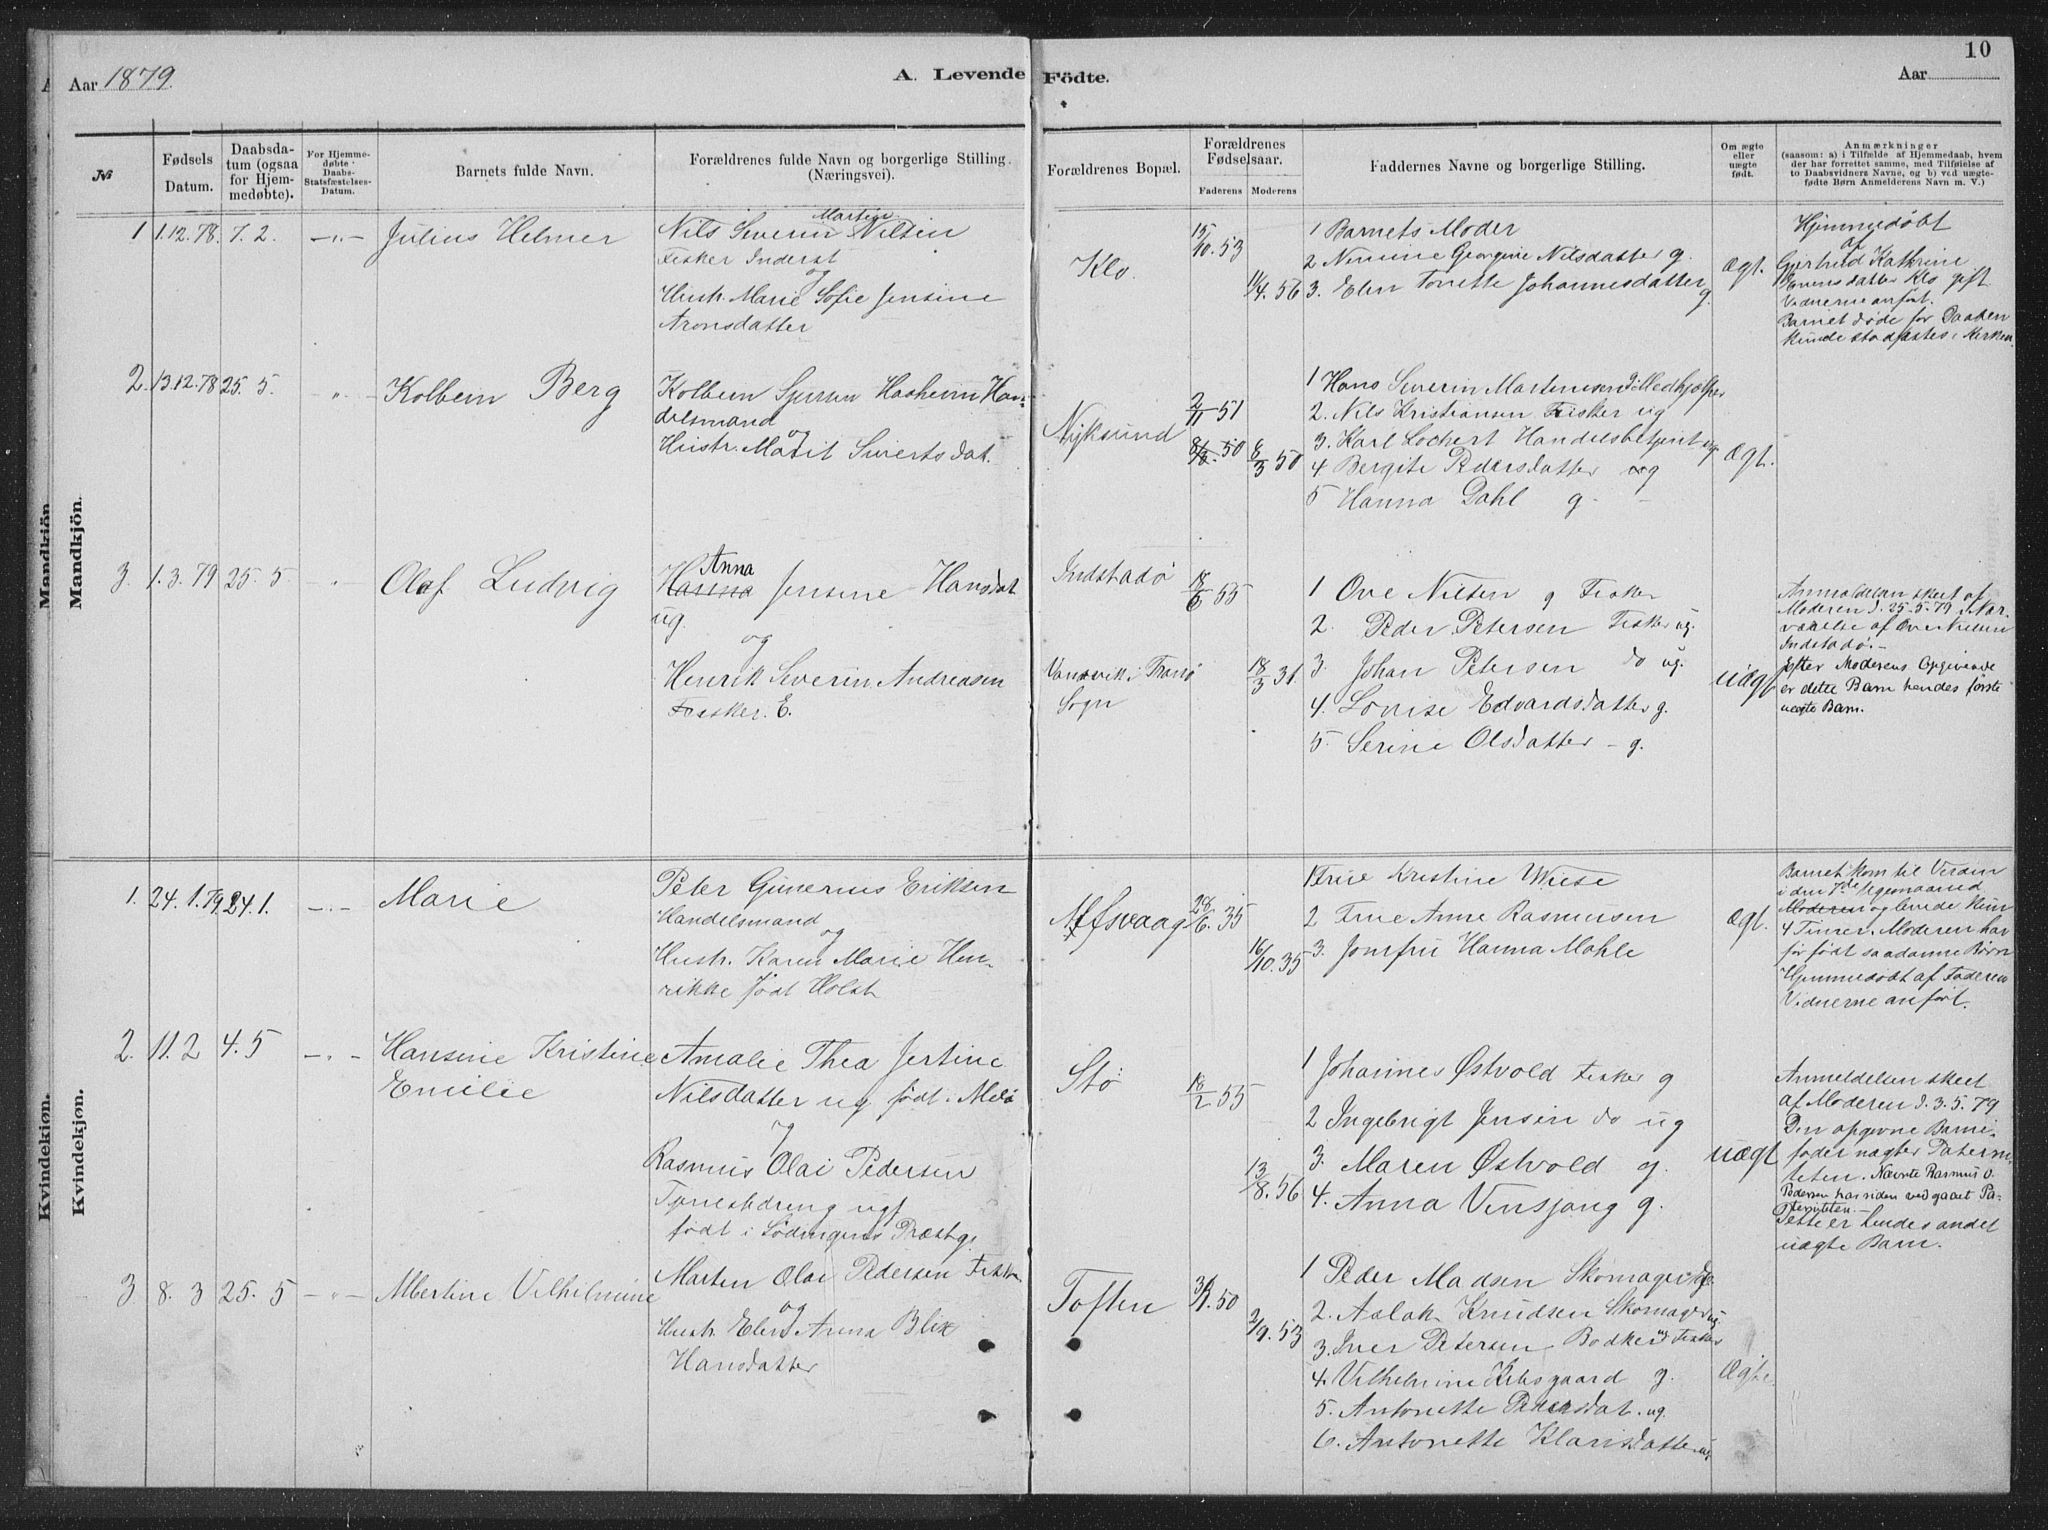 Aar 1879.
A. Levende Födte.
10
Aar
№
Fødsels Datum.
Daabsdatum (ogsaa for Hjemmedøbte).
For Hjemmedøbte Daabs-Stadfæstelses-Datum.
Barnets fulde Navn.
Forældrenes fulde Navn og borgerlige Stilling. (Næringsvei).
Forældrenes Bopæl.
Forældrenes Fødselsaar.
Faderens
Moderens
Faddernes Navne og borgerlige Stilling.
Om ægte eller uægte født.
Anmærkninger
(saasom: a) i Tilfælde af Hjemmedaab, hvem
der har forrettet samme, med Tilføielse af
to Daabsvidners Navne, og b) ved uægte-
fødte Børn Anmelderens Navn m. V.)
Mandkjön.
1 1.12.78. 7.2. -"- Julius Helmer
Martin
Nils Severin Nilsen
Fisker Inderst
og
Hustr. Marie Sofie Jensine
Aronsdatter
Klo.
15/10.53
11/4.56
1 Barnets Moder
2 Nimine Georgine Nilsdatter g.
3. Elen Tonette Johannesdatter
g.
Ægt.
Hjemmedøbt
af
Gjertrud Kathrine
Evensdatter Klo gift
Vidnerne anført.
Barnet døde før Daaben
kunde stadfæstes i Kirken.
2. 13.12.78 25.5. " Kolbein Berg
Kolbein Sjursen Hasheim Han-
delsmand
og
Hustr. Marit Sivertsdat.
Nyksund
2/11 51
8/3.50
8/3 50
1 Hans Severin Martinusen g. Medhjælper
2. Nils Kristiansen Fisker ug
3. Karl Lochert Handelsbetjent ug.
4 Bergite Pedersdatter ug
5 Hanna Dahl g.
Ægt.
3. 1.3.79 25.5 " Olaf Ludvig
Anna
Hanna Jensine Hansdat
ug.
og
Henrik Severin Andreasen
Fisker. E.
Indstadø
Vansvik i Tranø
Sogn
18/6 55
18/3 31
1 Ove Nilsen g Fisker
2. Peder Petersen Fisker ug.
3. Johan Petersen do ug.
4. Lovise Edvardsdatter g.
5. Serine Olsdatter - g.
uægt
Anmeldelsen skeet af
Moderen d. 25.5.79 i Nær-
værelse af Ove Nielsen
Indstadø.-
Efter Moderens Opgivende
er dette Barn hendes første
uægte Barn.
Kvindekjøn.
1. 24.1.79 24.1. -"- Marie
Peter Gunerius Eriksen
Handelsmand
og
Hustr. Karen Marie Hen-
rikke født Holst
Alfsvaag
28/6.35
16/10.35
1 Frue Kristine Wiese
2 Frue Anne Rasmusen
3. Jomfru Hanna Mahle
Ægt.
Barnet kom til Verden
i den 7de Ugemaaned
Moderen og levede kun
4 Timer. Moderen har
før født saadanne Børn
Hjemmedøbt af Faderen
Vidnerne anført.
2. 11.2 4.5 -"- Hansine Kristine
Emilie
Amalie Thea Jertine
Nilsdatter ug født i Melø
og
Rasmus Olai Pedersen
Tjenestedreng ugt
født i Lødingens Præstg.
Stø
18/2 55
13/8.56
1 Johannes Østvold Fisker g
2 Ingebrigt Jensen do ug
3. Maren Østvold g.
4. Anna Vinsjang g.
uægt
Anmeldelsen skeet
af Moderen d. 3.5.79
Den opgivne Barne-
fader nægter Paterni-
teten. Nævnte Rasmus O.
Pedersen har siden vedgaaet Pa-
terniteten.-
Dette er hendes andet
uægte Barn.
3 8.3 25.5 -"- Albertine Vilhelmine
Morten Olai Pedersen Fisker
og
Hustr. Elen Anna Blix
Hansdatter
Toften
3/1.50
2/9.53
1 Peder Madsen Skomager g.
2. Aslak Knudsen Skomager ug.
3. Iver Petersen Bødker og Fisker
4. Vilhelmine Kibsgaard g.
5. Antonette Pedersdat. ug.
6. Antonette Klausdatter ug.
Ægte